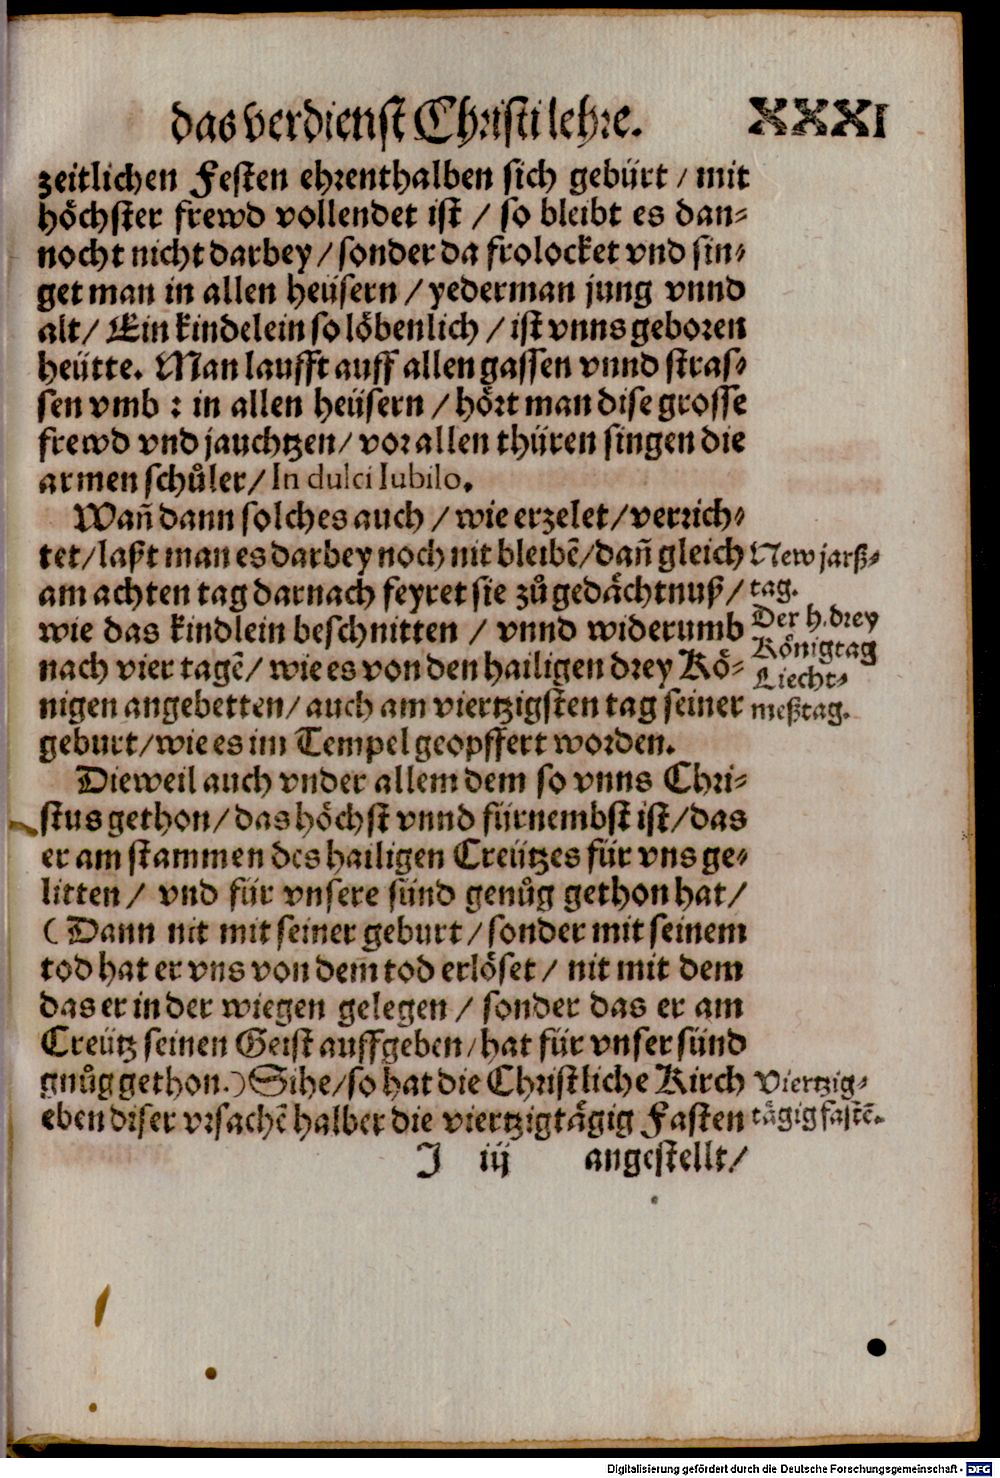 das verdienst Christi lehre. XXXI
zeitlichen Festen ehrenthalben sich gebürt / mit
höchster frewd vollendet ist / so bleibt es dan-
nocht nicht darbey / sonder da frolocket vnd sin-
get man in allen heüsern / yederman jung vnnd
alt / Ein kindelein so löbenlich / ist vnns geboren
heütte. Man laufft auff allen gassen vnnd stras-
sen vmb : in allen heüsern / hört man dise grosse
frewd vnd jauchtzen / vor allen thüren singen die
armen schůler / In dulci Iubilo.
Wañ dann solches auch / wie erzelet / verrich-
tet / laßt man es darbey noch nit bleibẽ / dañ gleich
am achten tag darnach feyret sie zů gedächtnuß /
wie das kindlein beschnitten / vnnd widerumb
nach vier tagẽ / wie es von den hailigen drey Kö-
nigen angebetten / auch am viertzigsten tag seiner
geburt / wie es im Tempel geopffert worden.
New jarß-
tag.
Der h. drey
Königtag
Liecht-
meßtag.
Dieweil auch vnder allem dem so vnns Chri-
stus gethon / das höchst vnnd fürnembst ist / das
er am stammen des hailigen Creützes für vns ge-
litten / vnd für vnsere sünd genůg gethon hat /
(Dann nit mit seiner geburt / sonder mit seinem
tod hat er vns von dem tod erlöset / nit mit dem
das er in der wiegen gelegen / sonder das er am
Creütz seinen Geist auffgeben / hat für vnser sünd
gnůg gethon.) Sihe / so hat die Christliche Kirch
eben diser vrsachẽ halber die viertzigtägig Fasten
Viertzig-
tägig fastẽ.
J iij angestellt /
Digitalisierung gefördert durch die Deutsche Forschungsgemeinschaft - DFG